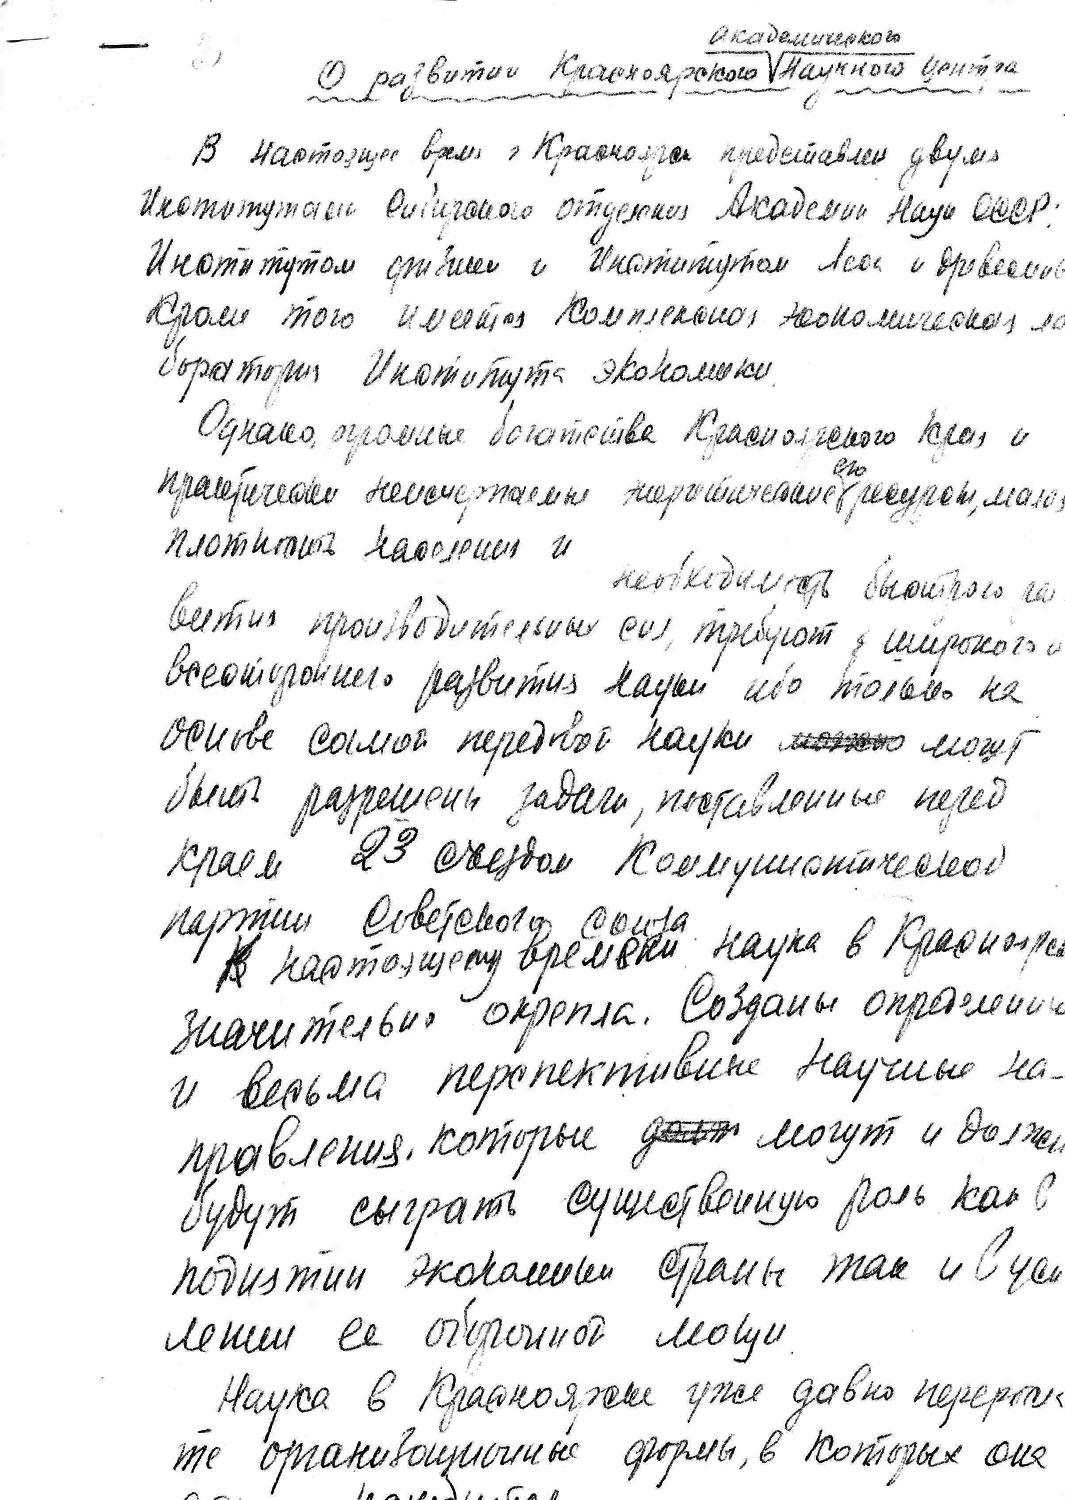 2)
Академического
О развитии Красноярского Научного Центра
В настоящее время в Красноярске представлен двумя
Институтами Сибирского отделения Академии Наук СССР:
Институтом физики и Институтом леса и древесины
Кроме того имеется Комплексная экономическая ла
боратория Института экономики.
Однако, огромные богатства Красноярского Края и
его
практически неисчерпаемые энергетические ресурсы, малая
плотность населения и
необходимость быстрого раз
вития производительных сил, требуют широкого и
всестороннего развития науки ибо только на
основе самой передовой науки можно могут
быть разрешены задачи, поставленные перед
краем 23 съездом Коммунистической
партии Советского союза
К настоящему времени наука в Красноярске
значительно окрепла. Созданы определенные
и весьма перспективные научные на-
правления. которые долж могут и должны
будут сыграть существенную роль как в
поднятии экономики страны так и в уси
лении ее оборонной мощи
Наука в Красноярске уже давно переросла
те организационные формы, в которых она
находится